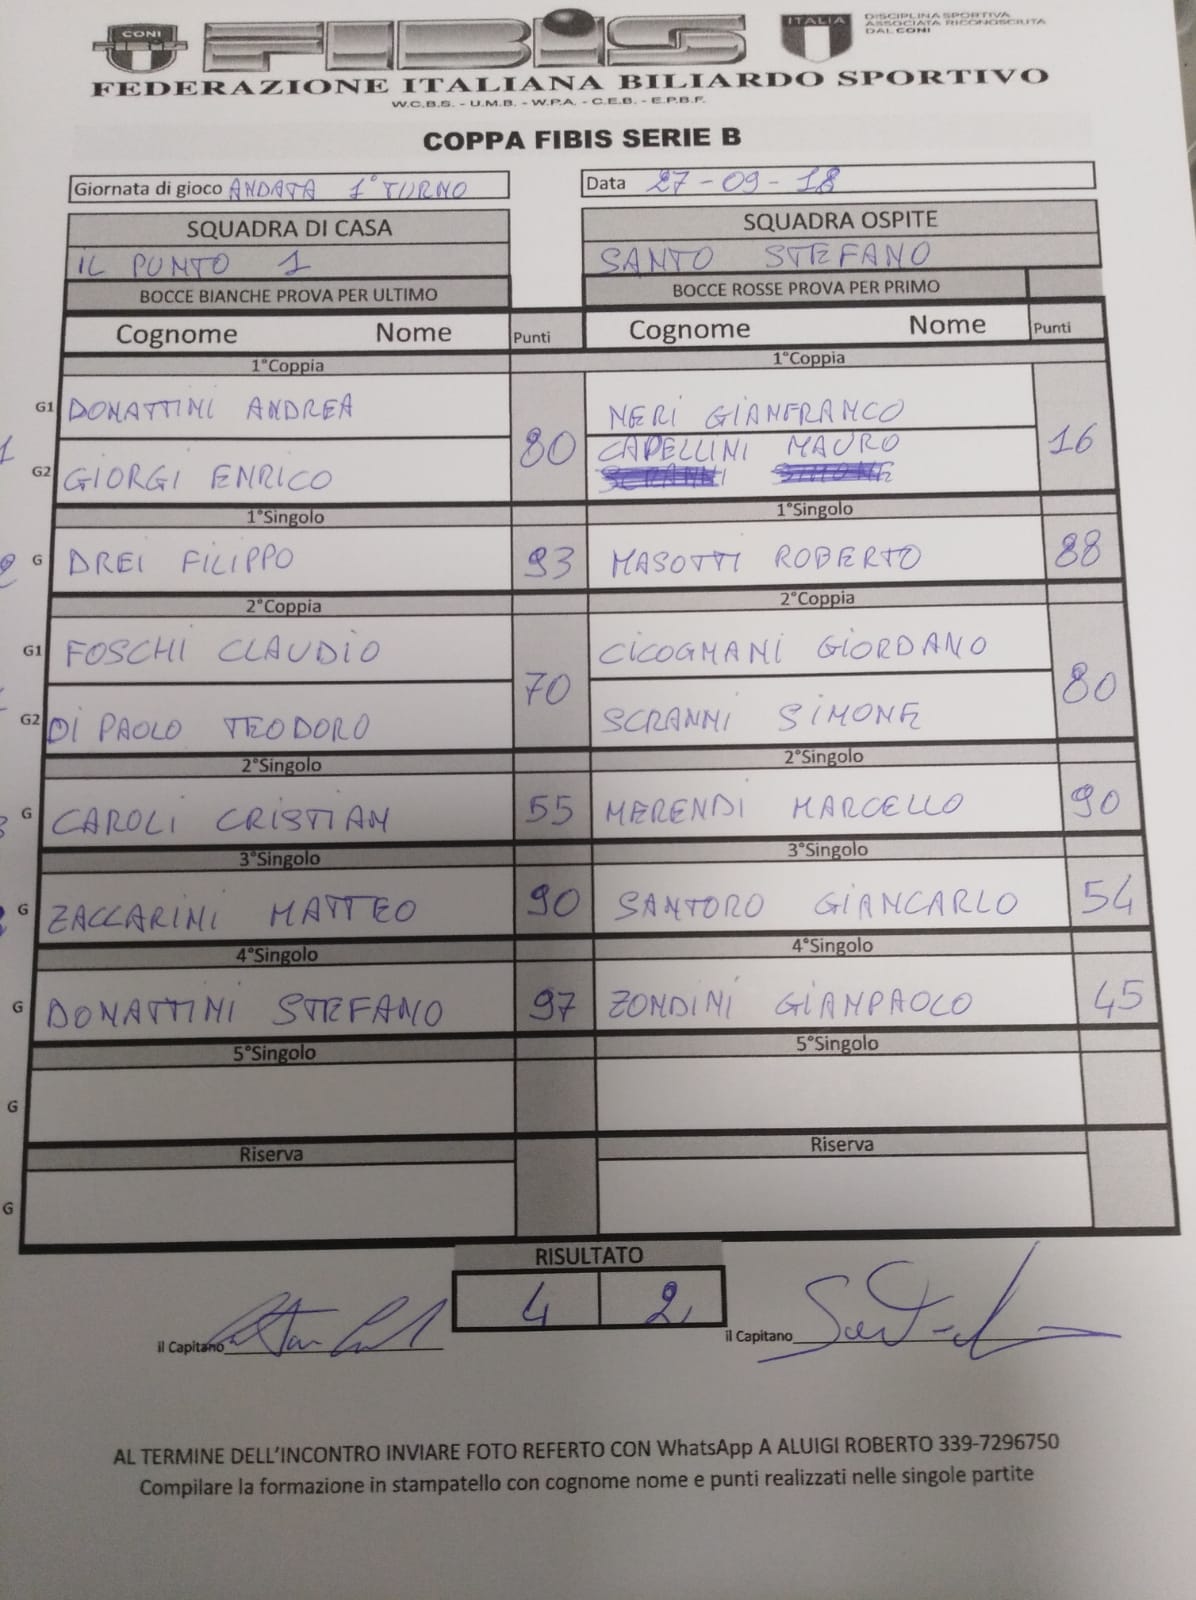 CONI
FIBIS
ITALIA
DISCIPLINA SPORTIVA
ASSOCIATA RICONOSCIUTA
DAL CONI
FEDERAZIONE ITALIANA BILIARDO SPORTIVO
W.C.B.S. - U.M.B. - W.P.A. - C.E.B. - E.P.B.F.
COPPA FIBIS SERIE B
Giornata di gioco ANDATA 1° TURNO Data 27-09-18
SQUADRA DI CASA SQUADRA OSPITE
IL PUNTO 1 SANTO STEFANO
BOCCE BIANCHE PROVA PER ULTIMO BOCCE ROSSE PROVA PER PRIMO
Cognome Nome Punti Cognome Nome Punti
1°Coppia 1°Coppia
G1 DONATTINI ANDREA 80 NERI GIANFRANCO 16
G2 GIORGI ENRICO CAPELLINI MAURO
1°Singolo 1°Singolo
G DREI FILIPPO 93 MASOTTI ROBERTO 88
2°Coppia 2°Coppia
G1 FOSCHI CLAUDIO 70 CICOGNANI GIORDANO 80
G2 DI PAOLO TEODORO SCRANNI SIMONE
2°Singolo 2°Singolo
G CAROLI CRISTIAN 55 MERENDI MARCELLO 90
3°Singolo 3°Singolo
G ZACCARINI MATTEO 90 SANTORO GIANCARLO 54
4°Singolo 4°Singolo
G DONATTINI STEFANO 97 ZONDINI GIANPAOLO 45
5°Singolo 5°Singolo
G
Riserva Riserva
G
RISULTATO
4 2
il Capitano il Capitano
AL TERMINE DELL'INCONTRO INVIARE FOTO REFERTO CON WhatsApp A ALUIGI ROBERTO 339-7296750
Compilare la formazione in stampatello con cognome nome e punti realizzati nelle singole partite